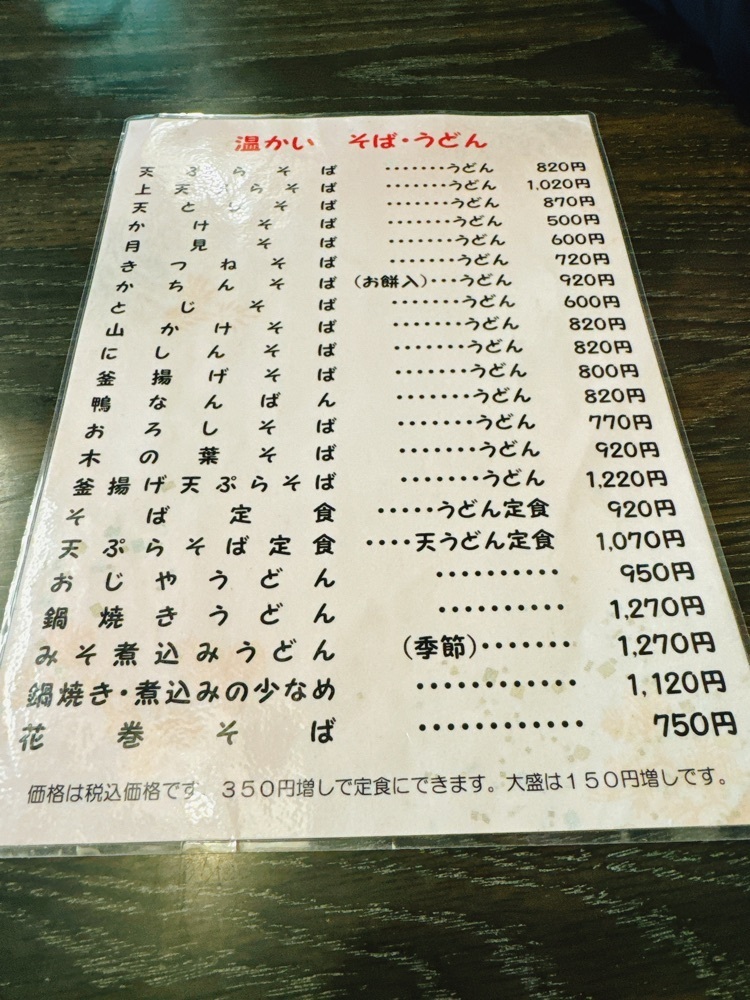 温かい そば・うどん
天ぷらそば ・・・・・・・うどん 820円
上天ぷらそば ・・・・・・・うどん 1,020円
天とじそば ・・・・・・・うどん 870円
かけそば ・・・・・・・うどん 500円
月見そば ・・・・・・・うどん 600円
きつねそば ・・・・・・・うどん 720円
かちんそば (お餅入)・・・うどん 920円
とじそば ・・・・・・・・うどん 600円
山かけそば ・・・・・・・・うどん 820円
にしんそば ・・・・・・・・うどん 820円
釜揚げそば ・・・・・・・・うどん 800円
鴨なんばん ・・・・・・・・うどん 820円
おろしそば ・・・・・・・・うどん 770円
木の葉そば ・・・・・・・・うどん 920円
釜揚げ天ぷらそば ・・・・・・・・うどん 1,220円
そば定食 ・・・・・うどん定食 920円
天ぷらそば定食 ・・・・天うどん定食 1,070円
おじやうどん ・・・・・・・・・・ 950円
鍋焼きうどん ・・・・・・・・・・ 1,270円
みそ煮込みうどん (季節)・・・・・・・ 1,270円
鍋焼き・煮込みの少なめ ・・・・・・・・・・・・ 1,120円
花巻そば ・・・・・・・・・・・・ 750円
価格は税込価格です。350円増しで定食にできます。大盛は150円増しです。